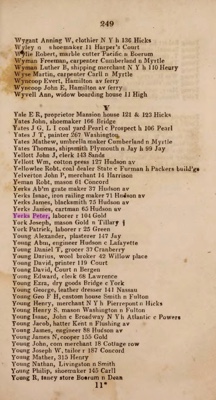 249
Wygant Anning W, clothier N Y h 136 Hicks
Wyley n shoemaker 11 Harper's Court
Wyllie Robert, marble cutter Pacific n Boerum
Wyman Freeman, carpenter Cumberland n Myrtle
Wyman Luther B, shipping merchant N Y h 110 Henry
Wyse Martin, carpenter Carll n Myrtle
Wynroop Evert, Hamilton av ferry
Wyncoop John E, Hamilton av ferry
Wyvell Ann, widow boarding house 11 High
Y
Yale E R, proprietor Mansion house 121 & 123 Hicks
Yates John, shoemaker 106 Bridge
Yates J G, L I coal yard Pearl c Prospect h 106 Pearl
Yates J T, painter 267 Washington
Yates Mathew, umbrella maker Cumberland n Myrtle
Yates Thomas, shipsmith Plymouth n Jay h 99 Jay
Yellott John J, clerk 143 Sands
Yellott Wm, cotton press 127 Hudson av
Yellowlee Robt, coal dealer State c Furman h Packers build'gs
Yelverton John P, merchant 14 Harrison
Yeman Robt, mason 61 Concord
Yerks Ab'm grate maker 37 Hudson av
Yerks Isaac, iron railing maker 71 Hudson av
Yerks James, blacksmith 75 Hudson av
Yerks James, cartman 65 Hudson av
Yerks Peter, laborer r 104 Gold
York Joseph, mason Gold n Tillary
York Patrick, laborer r 25 Green
Young Alexander, plasterer 147 Jay
Young Abm, engineer Hudson c Lafayette
Young Daniel T, grocer 37 Cranberry
Young Darius, wool broker 42 Willow place
Young David, printer 119 Court
Young David, Court n Bergen
Young Edward, clerk 68 Lawrence
Young Ezra, dry goods Bridge c York
Young George, leather dresser 141 Nassau
Young Geo F H, custom house Smith n Fulton
Young Henry, merchant N Y h Pierrepont c Hicks
Young Henry S. mason Washington n Fulton
Young Isaac, John c Broadway N Y h Atlantic c Powers
Young Jacob, hatter Kent n Flushing av
Young James, engineer 86 Hudson av
Young James N, cooper 155 Gold
Young John, com merchant 18 Cottage row
Young Joseph W, tailor r 187 Concord
Young Mather, 315 Henry
Young Nathan, Livingston n Smith
Young Philip, shoemaker 145 Carll
Young R, fancy store Boerum n Dean
11*